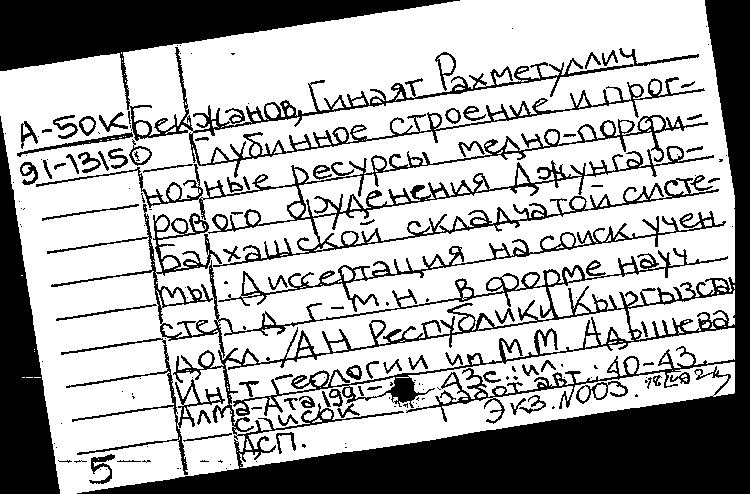 А-50К Бекжанов, Гинаят Рахметуллич
91-13150 Глубинное строение и прог-
нозные ресурсы медно-порфи-
рового оруденения Джунгаро-
Балхашской складчатой систе-
мы: Диссертация на соиск. учен.
степ. д. г.-м.н. в форме науч.
докл. /АН Республики Кыргызстан
Ин-т геологии им. М.М. Адышева.
Алма-Ата, 1991- 43с.: ил.
список работ авт.: 40-43.
ДСП. Экз. N003.
5